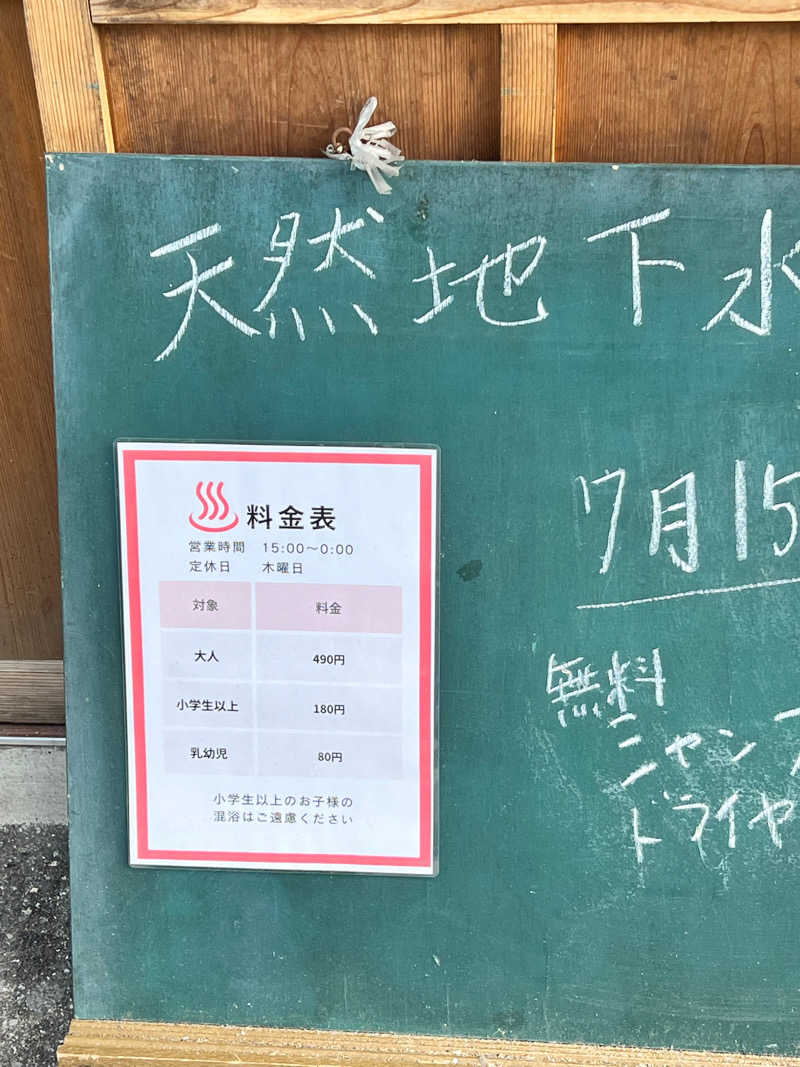 天然地下水
料金表
営業時間 15:00〜0:00
定休日 木曜日
対象 料金
大人 490円
小学生以上 180円
乳幼児 80円
小学生以上のお子様の
混浴はご遠慮ください
7月15
無料
シャンプ
ドライヤ